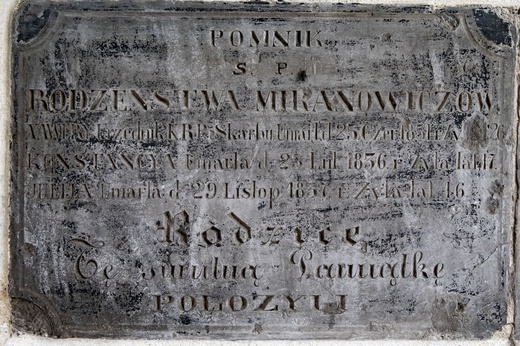 POMNIK
Ś. P.
RODZEŃSTWA MIRANOWICZÓW
XAWERY Urzędnik K.R.P. i Skarbu Umarł d. 25 Czer. 1831 r. Żył lat 26
KONSTANCYA Umarła d. 25 Lut. 1836 r. Żyła lat 17
JULIA Umarła d. 29 Listop 1837 r. Żyła lat 16.
Rodzice
Tę smutną Pamiątkę
POŁOŻYLI